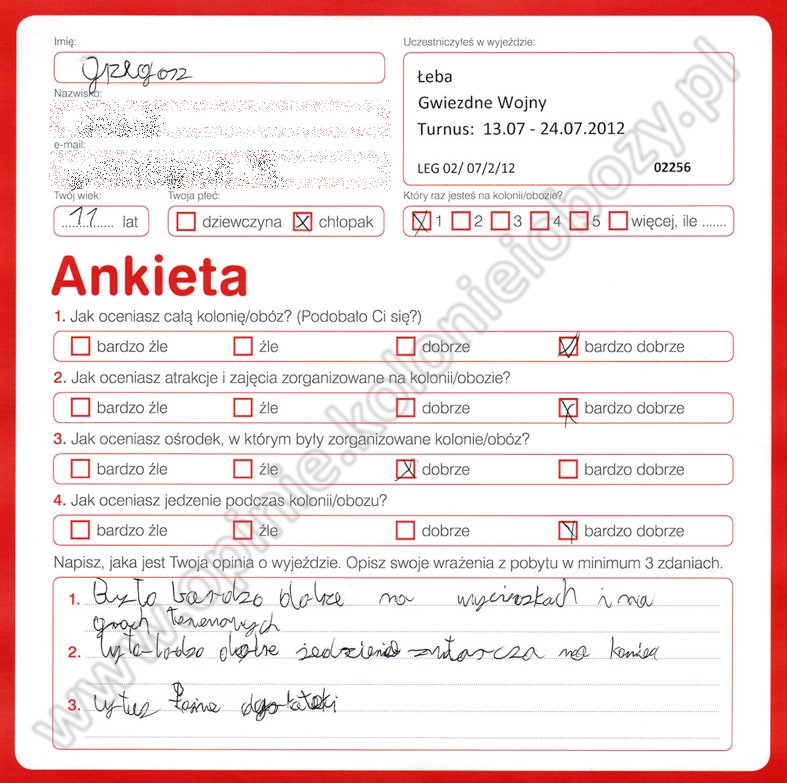 Imię:
Uczestniczyłeś w wyjeździe:
Grzegorz
Łeba
Gwiezdne Wojny
Turnus: 13.07 - 24.07.2012
LEG 02/ 07/2/12 02256
Nazwisko:
e-mail:
Twój wiek:
Twoja płeć:
Który raz jesteś na kolonii/obozie?
11 lat
dziewczyna
chłopak
1 2 3 4 5 więcej, ile .......
Ankieta
1. Jak oceniasz całą kolonię/obóz? (Podobało Ci się?)
bardzo źle źle dobrze bardzo dobrze
2. Jak oceniasz atrakcje i zajęcia zorganizowane na kolonii/obozie?
bardzo źle źle dobrze bardzo dobrze
3. Jak oceniasz ośrodek, w którym były zorganizowane kolonie/obóz?
bardzo źle źle dobrze bardzo dobrze
4. Jak oceniasz jedzenie podczas kolonii/obozu?
bardzo źle źle dobrze bardzo dobrze
Napisz, jaka jest Twoja opinia o wyjeździe. Opisz swoje wrażenia z pobytu w minimum 3 zdaniach.
1. Było bardzo dobrze na wycieczkach i na
grach terenowych
2. dobre jedzienie na koniec
3.
www.opinie.kolonieiobozy.pl